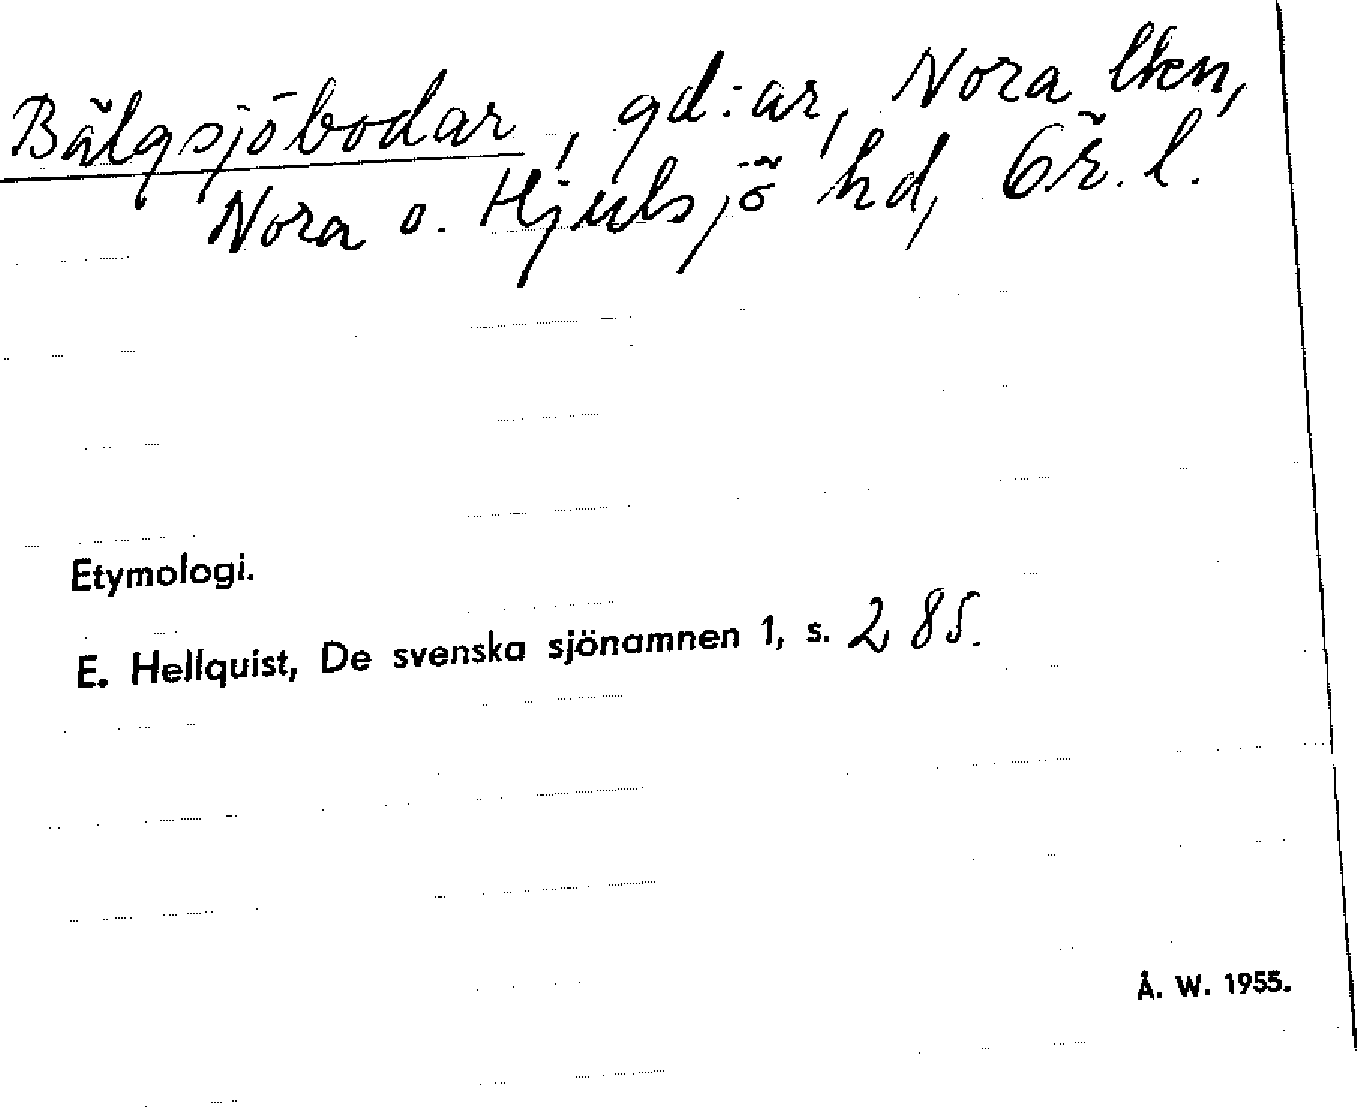 Bälgsjöbodar, gd:ar, Nora lfsn,
Nora o. Hjulsjö hd, Ör. l.
Etymologi.
E. Hellquist, De svenska sjönamnen 1, s. 285.
Å. W. 1955.